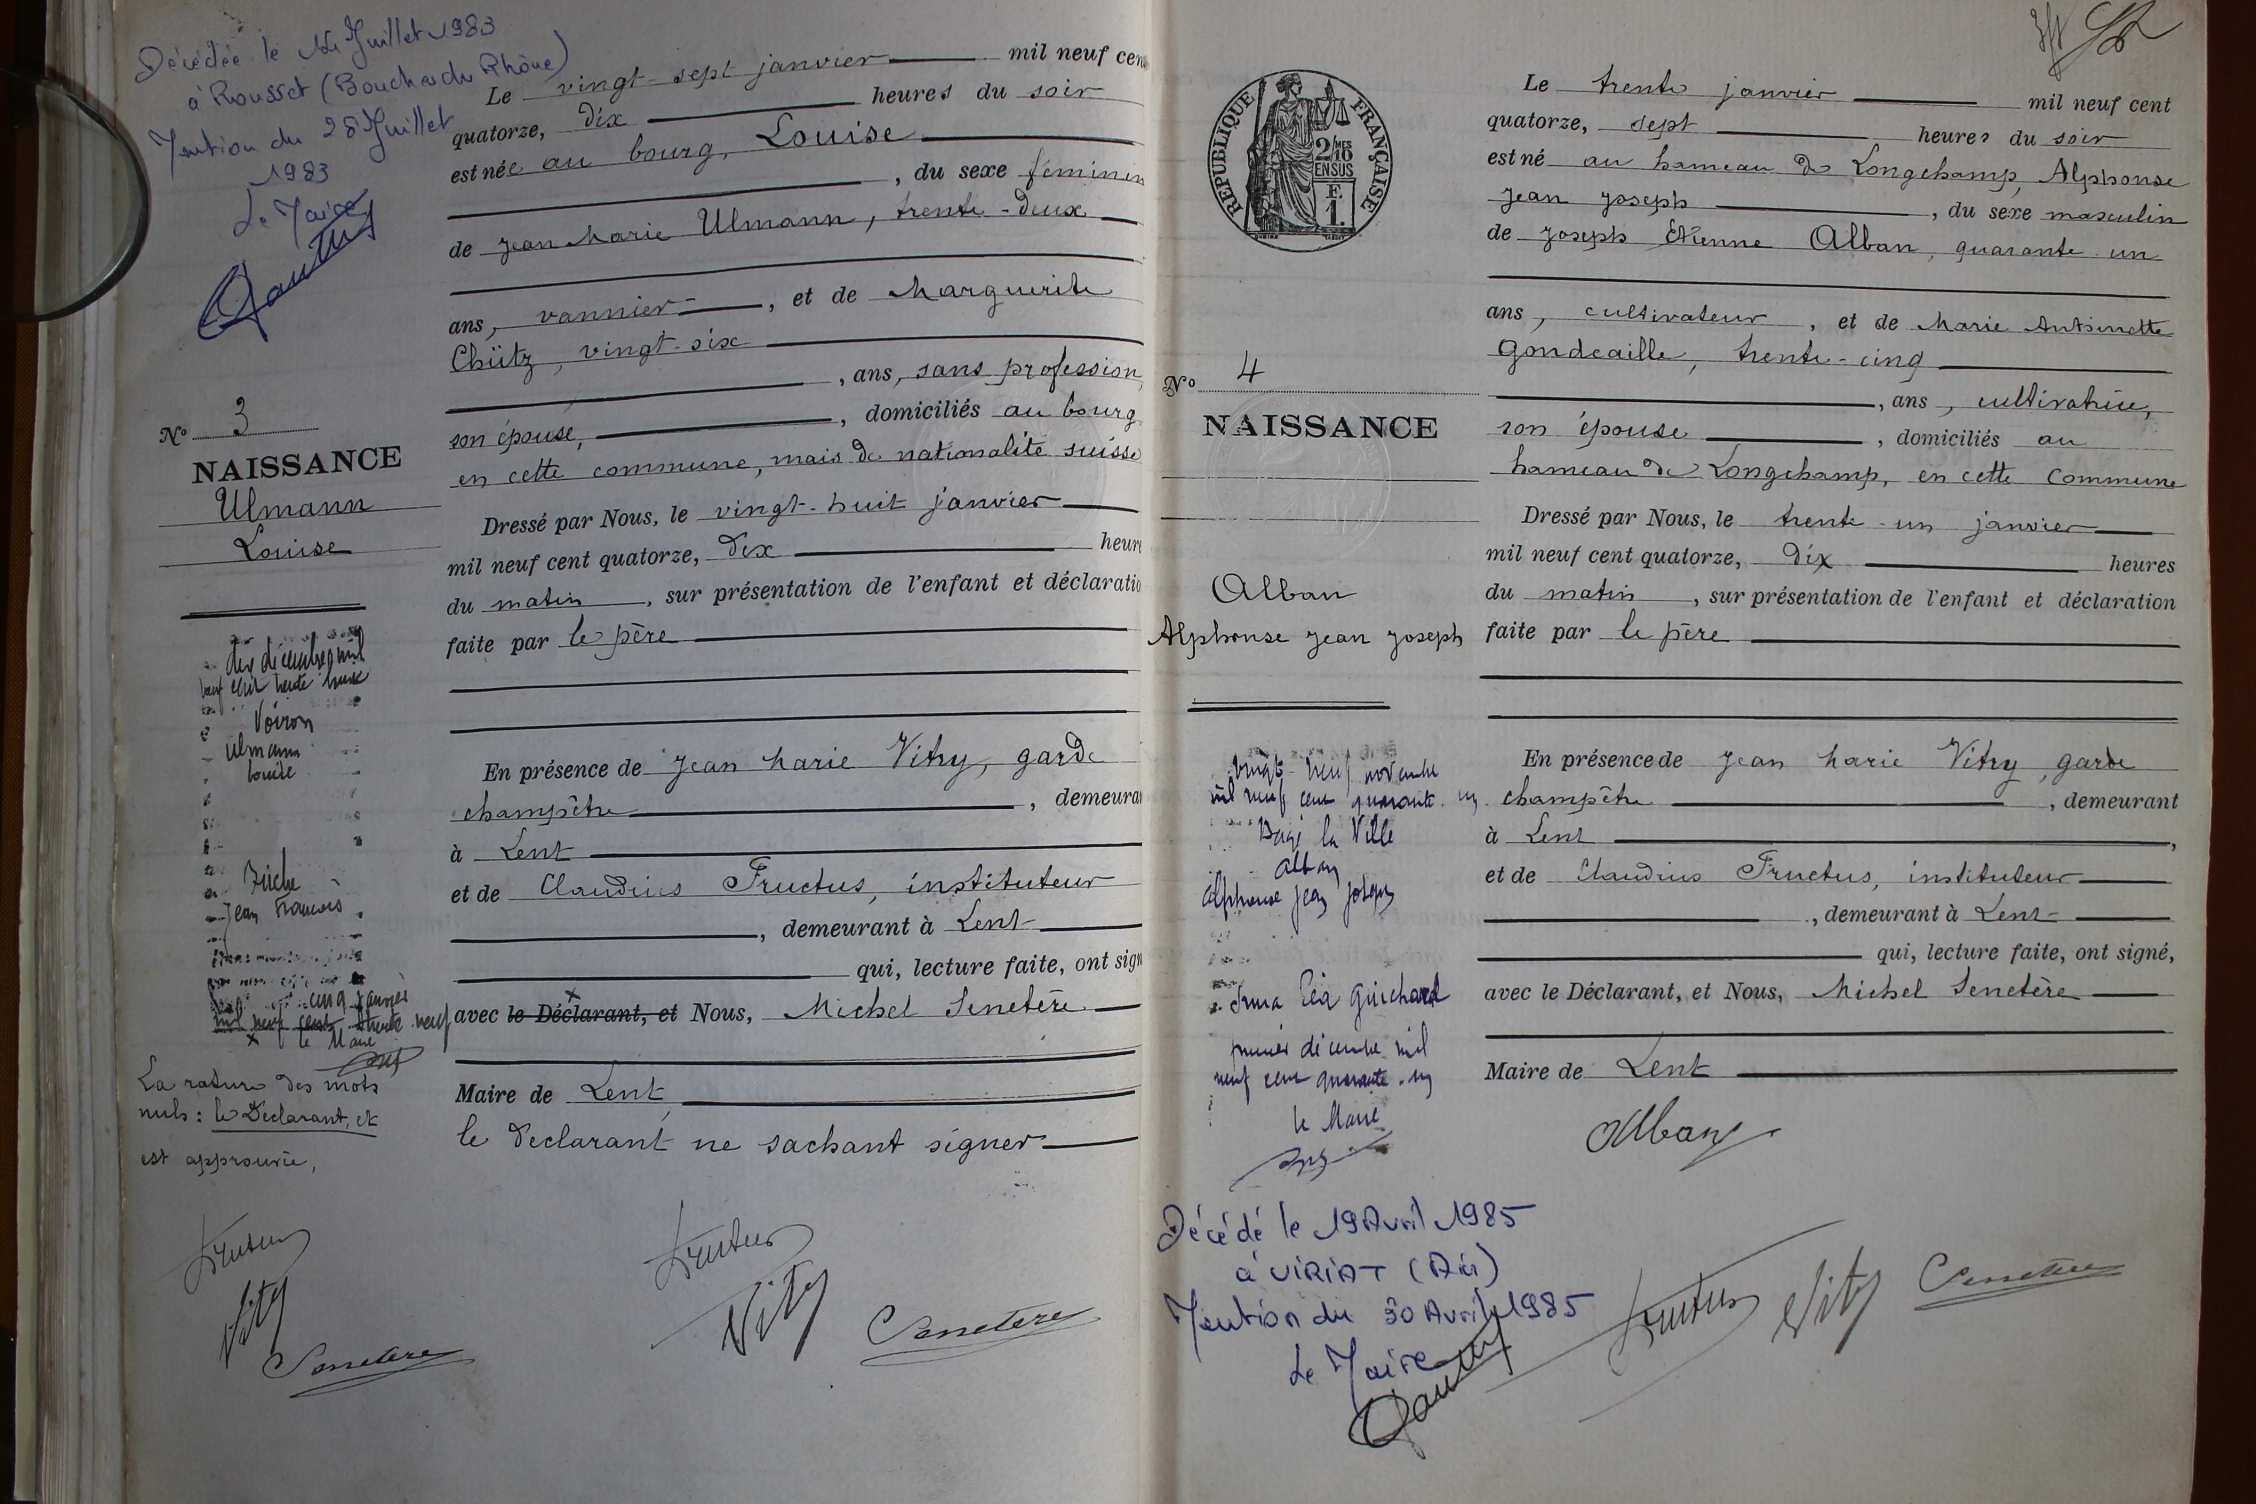 Décédée le Juillet 1983
à Rousset (Bouches du Rhône)
Mention du 28 Juillet
1983
Le Maire
Le vingt-sept janvier mil neuf cent
quatorze, dix heures du soir
est née au bourg, Louise
, du sexe féminin
de Jean Marie Ulmann, trente-deux
ans, vannier, et de Marguerite
Chütz, vingt-six
, ans, sans profession,
son épouse, , domiciliés au bourg
en cette commune, mais de nationalité suisse
Dressé par Nous, le vingt-huit janvier
mil neuf cent quatorze, dix heure
du matin, sur présentation de l'enfant et déclaratio
faite par le père
En présence de Jean Marie Vitry, garde
champêtre, demeuran
à Lent
et de Claudius Fructus, instituteur
, demeurant à Lent
qui, lecture faite, ont sign
avec le Déclarant, et Nous, Michel Senetère
Maire de Lent
le declarant ne sachant signer
No 3
NAISSANCE
Ulmann
Louise
dix décembre mil
neuf cent trente huit
Voiron
Ulmann
Louise
Jean François
cinq janvier
mil neuf cent trente neuf
le Maire
La rature des mots
nuls : le Declarant, et
est approuvée,
Fructus
Vitry
Senetère
Fructus
Vitry
Senetère
RÉPUBLIQUE FRANÇAISE
2/10MES
EN SUS
F
1.
Le trente janvier mil neuf cent
quatorze, sept heures du soir
est né au hameau de Longchamp, Alphonse
Jean Joseph, du sexe masculin
de Joseph Etienne Alban, quarante un
ans, cultivateur, et de Marie Antoinette
Gondcaille, trente-cinq
, ans, cultivatrice,
son épouse, domiciliés au
hameau de Longchamp, en cette commune
Dressé par Nous, le trente-un janvier
mil neuf cent quatorze, dix heures
du matin, sur présentation de l'enfant et déclaration
faite par le père
En présence de Jean Marie Vitry, garde
champêtre, demeurant
à Lent,
et de Claudius Fructus, instituteur
, demeurant à Lent
qui, lecture faite, ont signé,
avec le Déclarant, et Nous, Michel Senetère
Maire de Lent
No 4
NAISSANCE
Alban
Alphonse Jean Joseph
vingt-neuf novembre
mil neuf cent quarante-un
Bagé la Ville
Alban
Alphonse Jean Joseph
Irma Léa Guichard
premier décembre mil
neuf cent quarante-un
le Maire
Décédé le 19 Avril 1985
à VIRIAT (Ain)
Mention du 30 Avril 1985
Le Maire
Alban
Fructus
Vitry
Senetère